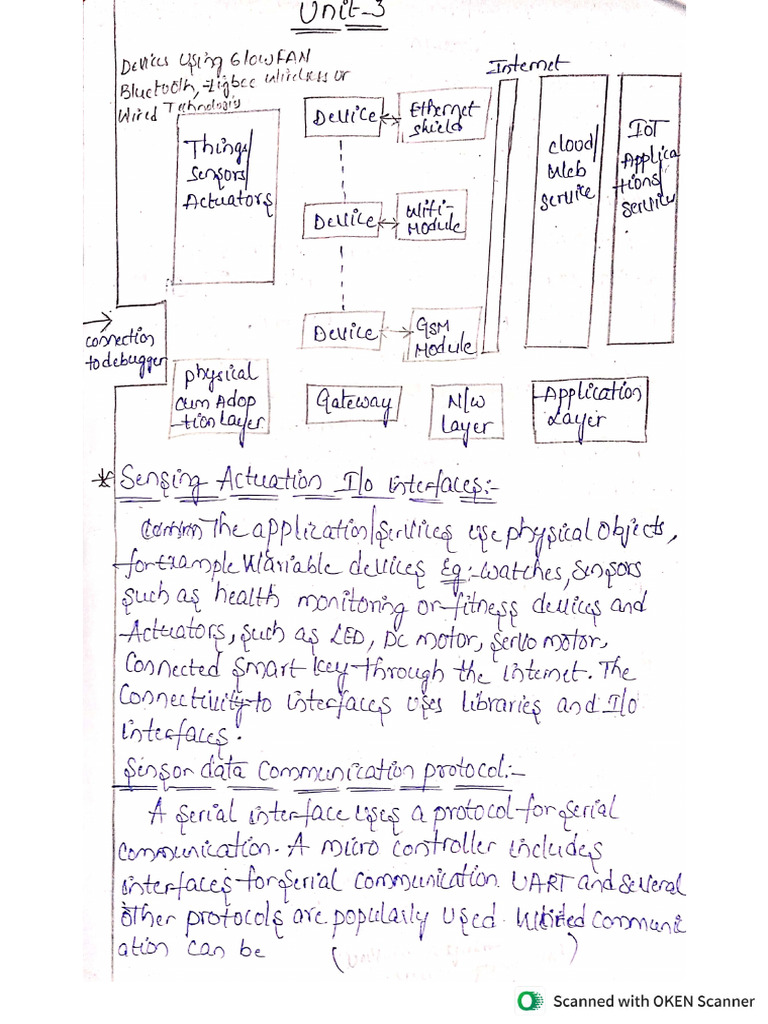 Unit-3
Devices Using 6lowPAN
Bluetooth, Zigbee Wireless or
Wired Technologis
Things/
Sensors/
Actuators
Device
Ethernet
Shield
Device
Wifi-
Module
Device
GSM
Module
Internet
cloud/
Web
Service
IoT
Applica
tions/
Service
connection
to debugger
physical
cum Adop
-tion Layer
Gateway
N/w
Layer
Application
Layer
* Sensing Actuation I/o interfaces:-
The application/services use physical objects,
for example Wariable devices Eg:- watches, sensors
such as health monitoring or fitness devices and
Actuators, such as LED, DC motor, servo motor,
Connected smart key through the internet. The
Connectivity to interfaces uses libraries and I/o
interfaces.
Sensor data Communication protocol:-
A serial interface uses a protocol for serial
communication. A micro controller includes
interfaces for serial communication. UART and several
other protocols are popularly used. Wired Communi
ation can be ( )
Scanned with OKEN Scanner